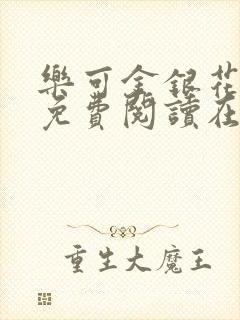 樂可金銀花
免費閱讀在
重生大魔王